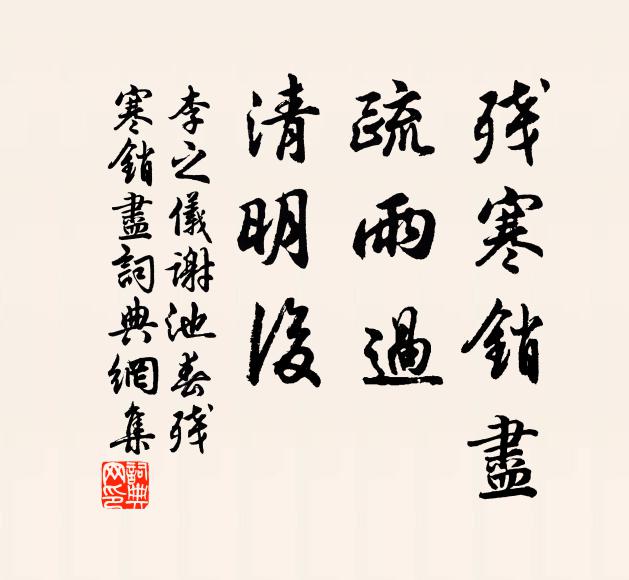 残寒銷盡
疏雨過
清明後
李之儀謝池春残
寒銷盡詞典網集
詞典网印